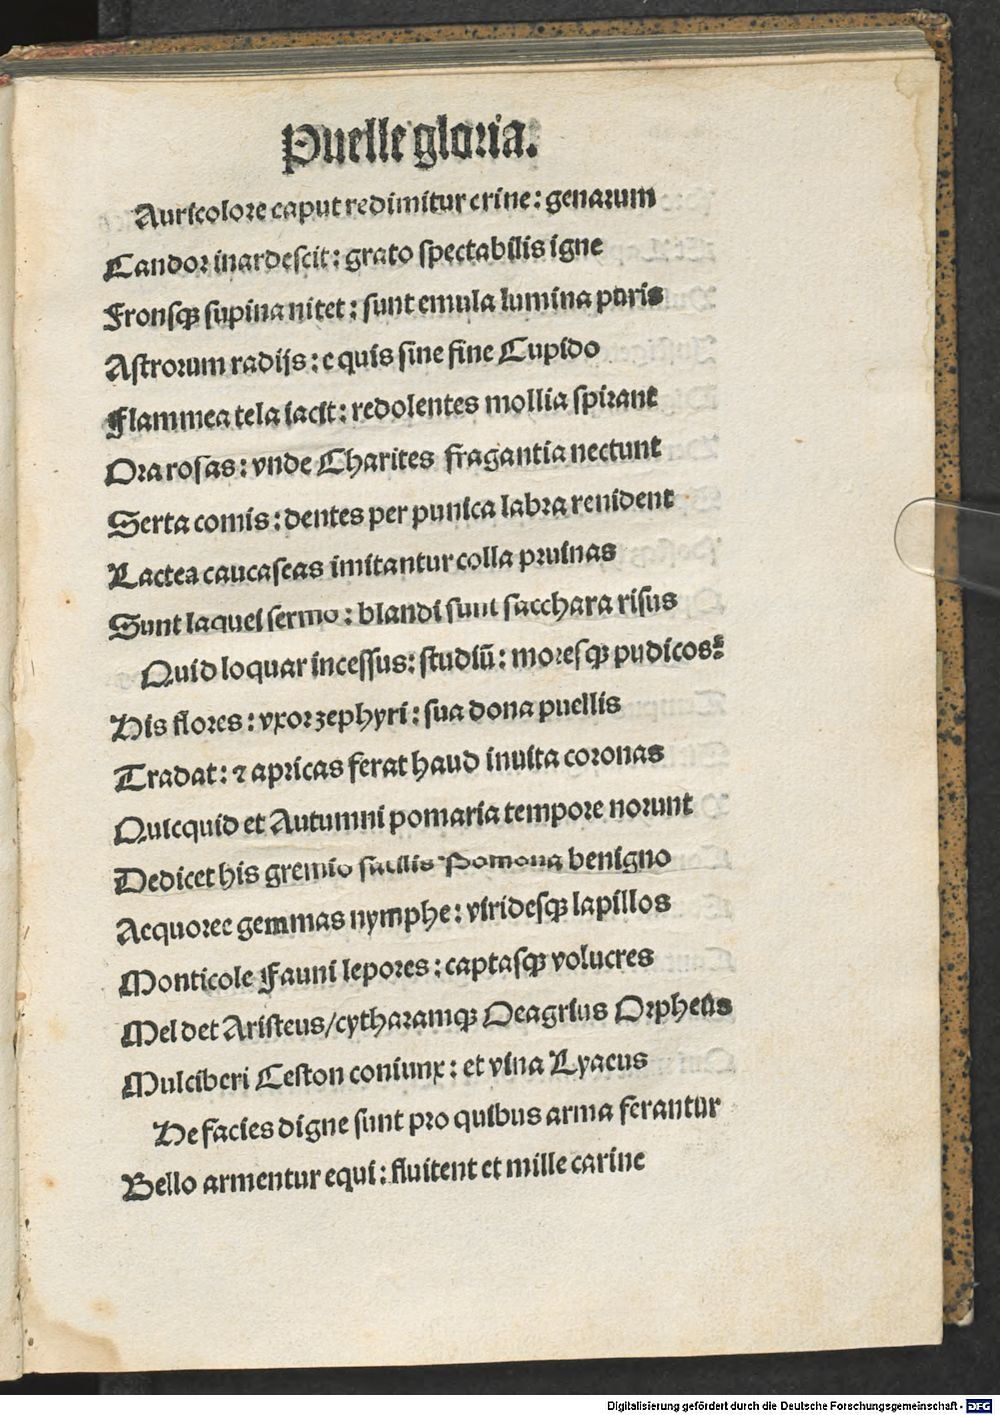 Puelle gloria.
Auricolore caput redimitur crine: genarum
Candor inardescit: grato spectabilis igne
Fronsqꝫ supina nitet: sunt emula lumina puris
Astrorum radijs: e quis sine fine Cupido
Flammea tela iacit: redolentes mollia spirant
Ora rosas: vnde Charites fragantia nectunt
Serta comis: dentes per punica labra renident
Lactea caucaseas imitantur colla pruinas
Sunt laquei sermo: blandi sunt sacchara risus
Quid loquar incessus: studiū: moresqꝫ pudicos?
His flores: vxor zephyri: sua dona puellis
Tradat: ⁊ apricas ferat haud inuita coronas
Quicquid et Autumni pomaria tempore norunt
Dedicet his gremio Pomona benigno
Aequoree gemmas nymphe: viridesqꝫ lapillos
Monticole Fauni lepores: captasqꝫ volucres
Mel det Aristeus/cytharamqꝫ Oeagrius Orpheus
Mulciberi Ceston coniunx: et vina Lyaeus
He facies digne sunt pro quibus arma ferantur
Bello armentur equi: fluitent et mille carine
Digitalisierung gefördert durch die Deutsche Forschungsgemeinschaft - DFG